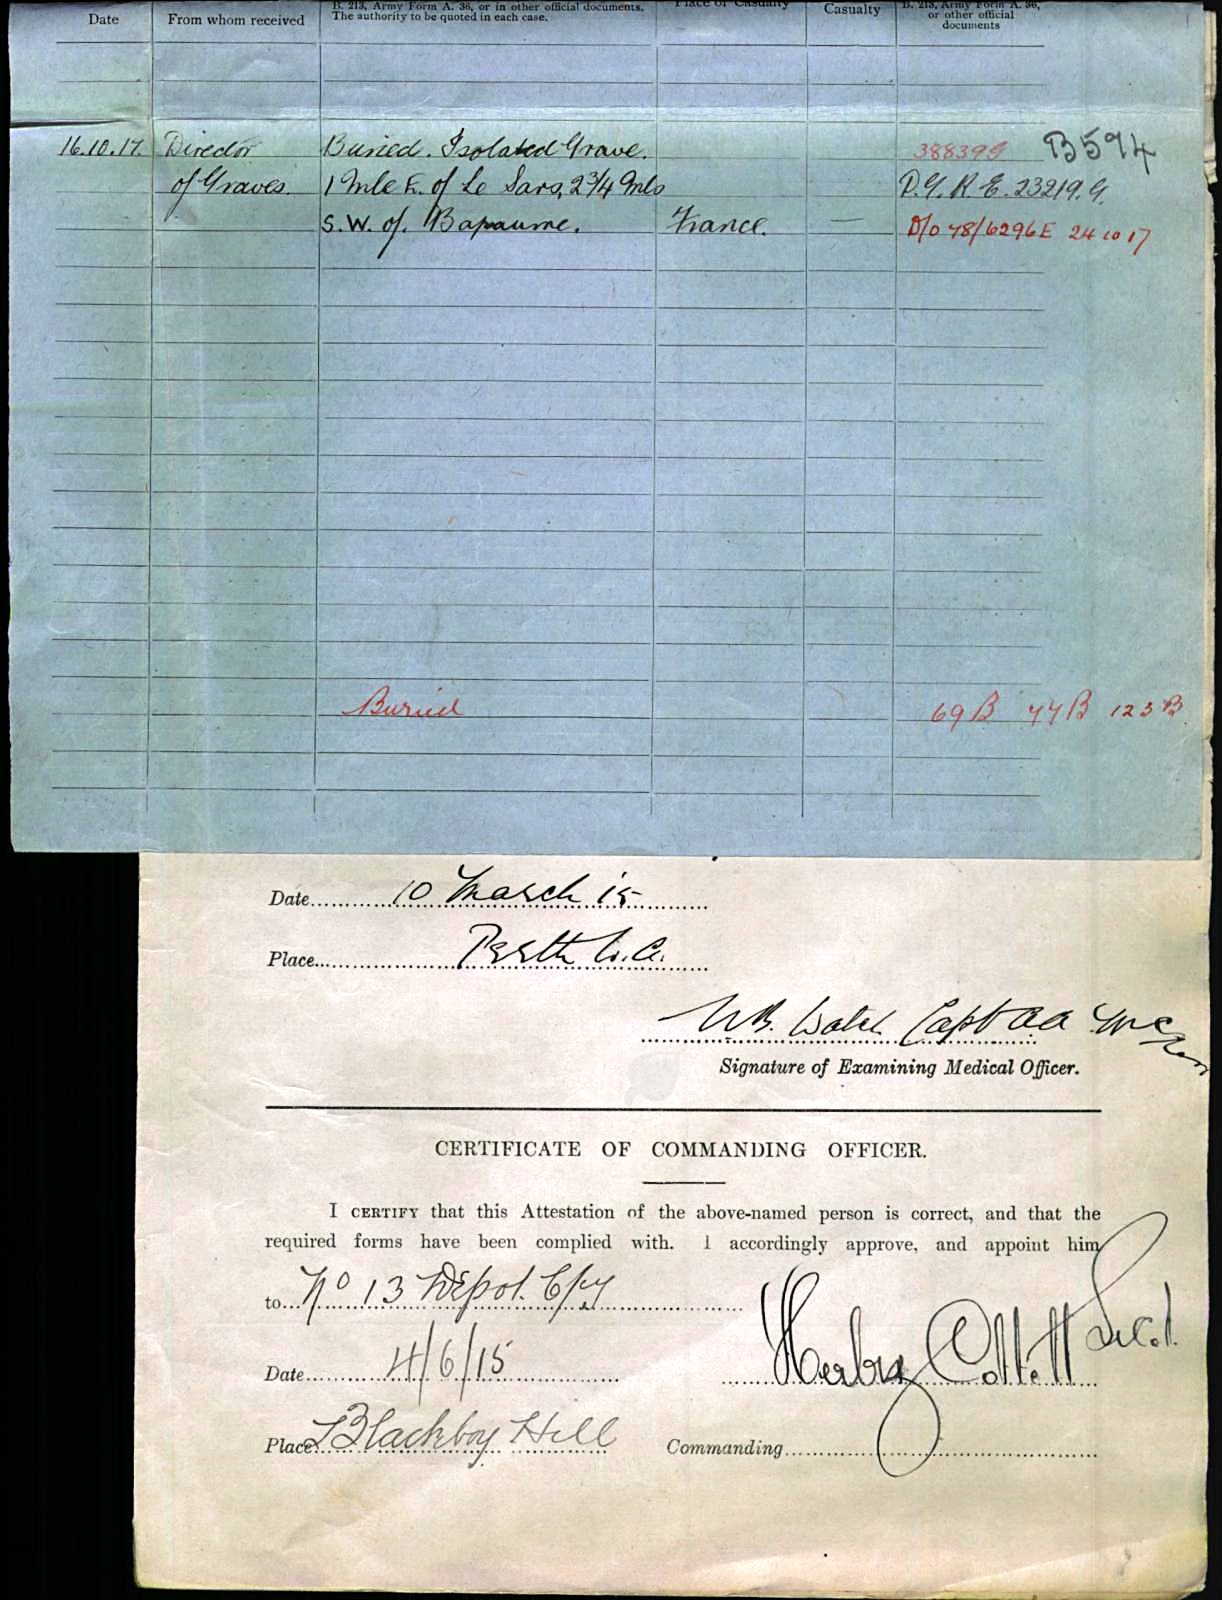 B. 213, Army Form A. 36, or in other official documents. Place of Casualty B. 213, Army Form A. 36,
Date From whom received The authority to be quoted in each case. Casualty or other official
documents
16.10.17. Director Buried. Isolated Grave. 388399 B594
of Graves. 1 Mle E. of Le Sars, 2 3/4 Mls D.G.R.E. 23219.G.
S.W. of. Bapaume. France. — D/o 48/6296E 24 10 17
Buried 69 B 77 B 123 B
Date 10 March 15
Place Perth W.A.
Capt
Signature of Examining Medical Officer.
CERTIFICATE OF COMMANDING OFFICER.
I CERTIFY that this Attestation of the above-named person is correct, and that the
required forms have been complied with. I accordingly approve, and appoint him
to No 13 Depot. Cpy
Date 4/6/15
Place Blackboy Hill Commanding